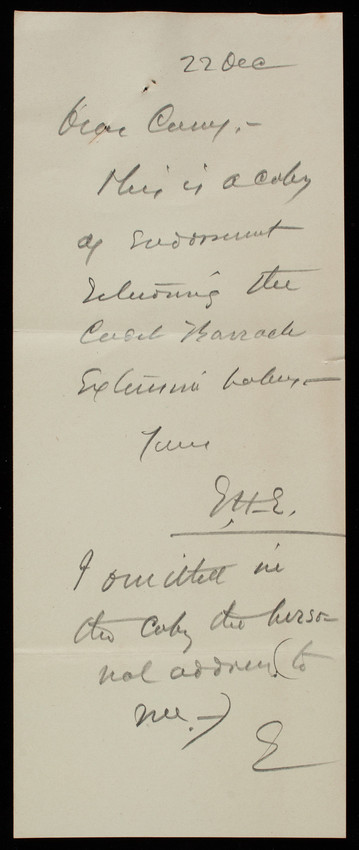 22 Dec
Dear Casey,-
This is a copy
of Endorsement
Returning the
Cadet Barrack
Extension papers—
Yours
E.H.E.
I omitted in
the copy the perso-
nal address (to
me.-)
E